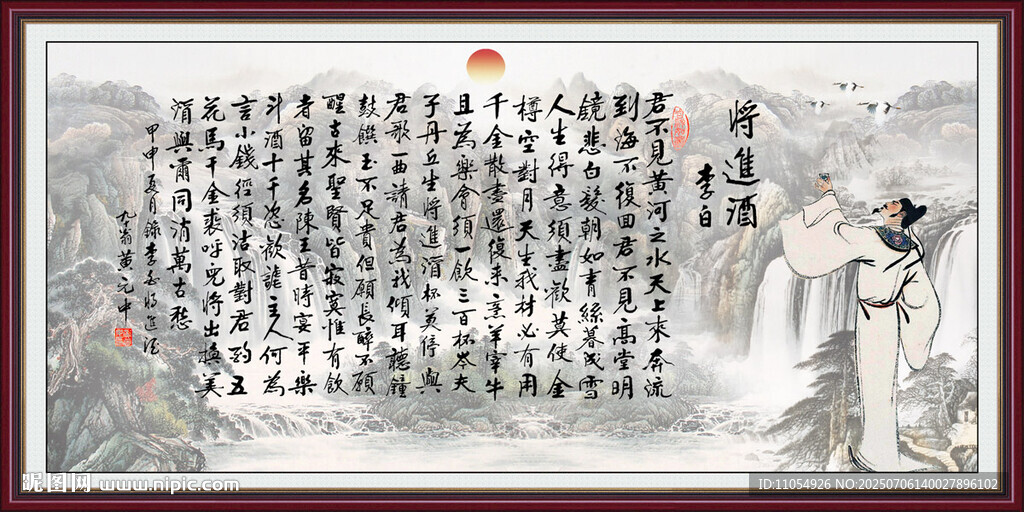 將進酒
李白
君不見黃河之水天上來奔流
到海不復回君不見高堂明
鏡悲白髮朝如青絲暮成雪
人生得意須盡歡莫使金
樽空對月天生我材必有用
千金散盡還復來烹羊宰牛
且為樂會須一飲三百杯岑夫
子丹丘生將進酒杯莫停與
君歌一曲請君為我傾耳聽鐘
鼓饌玉不足貴但願長醉不願
醒古來聖賢皆寂寞惟有飲
者留其名陳王昔時宴平樂
斗酒十千恣歡謔主人何為
言少錢徑須沽取對君酌五
花馬千金裘呼兒將出換美
酒與爾同消萬古愁
甲申夏月錄李白將進酒
九翁黃元中
昵图网 www.nipic.com
ID:11054926 NO:20250706140027896102